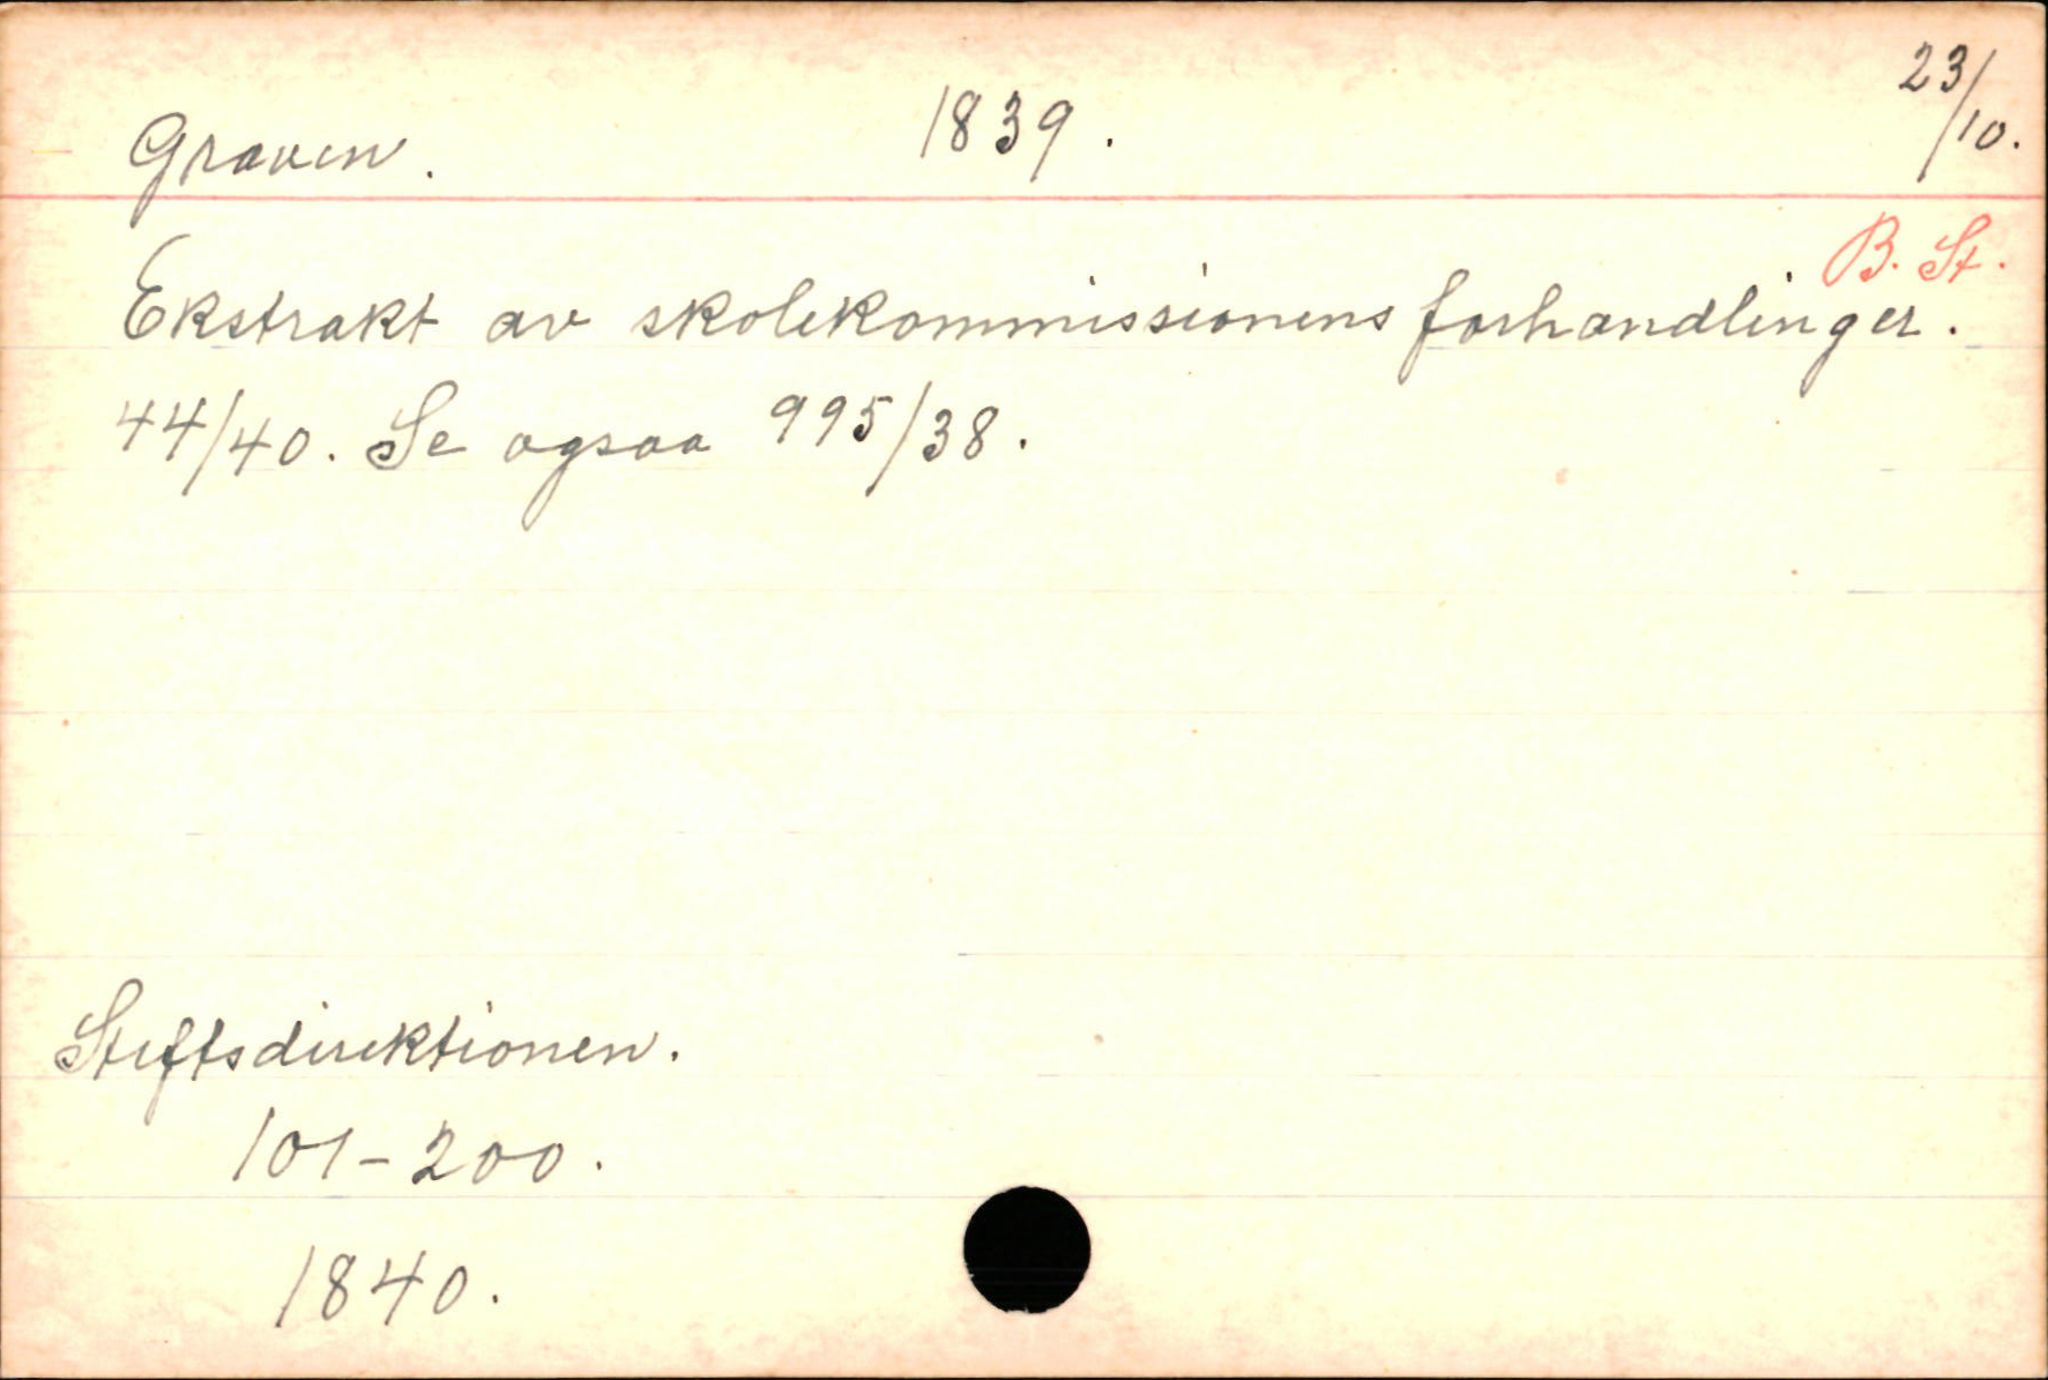 Graven. 1839. 23/10.
B. St.
Ekstrakt av skolekommissionens forhandlinger.
44/40. Se ogsaa 995/38.
Stiftsdirektionen.
101-200.
1840.